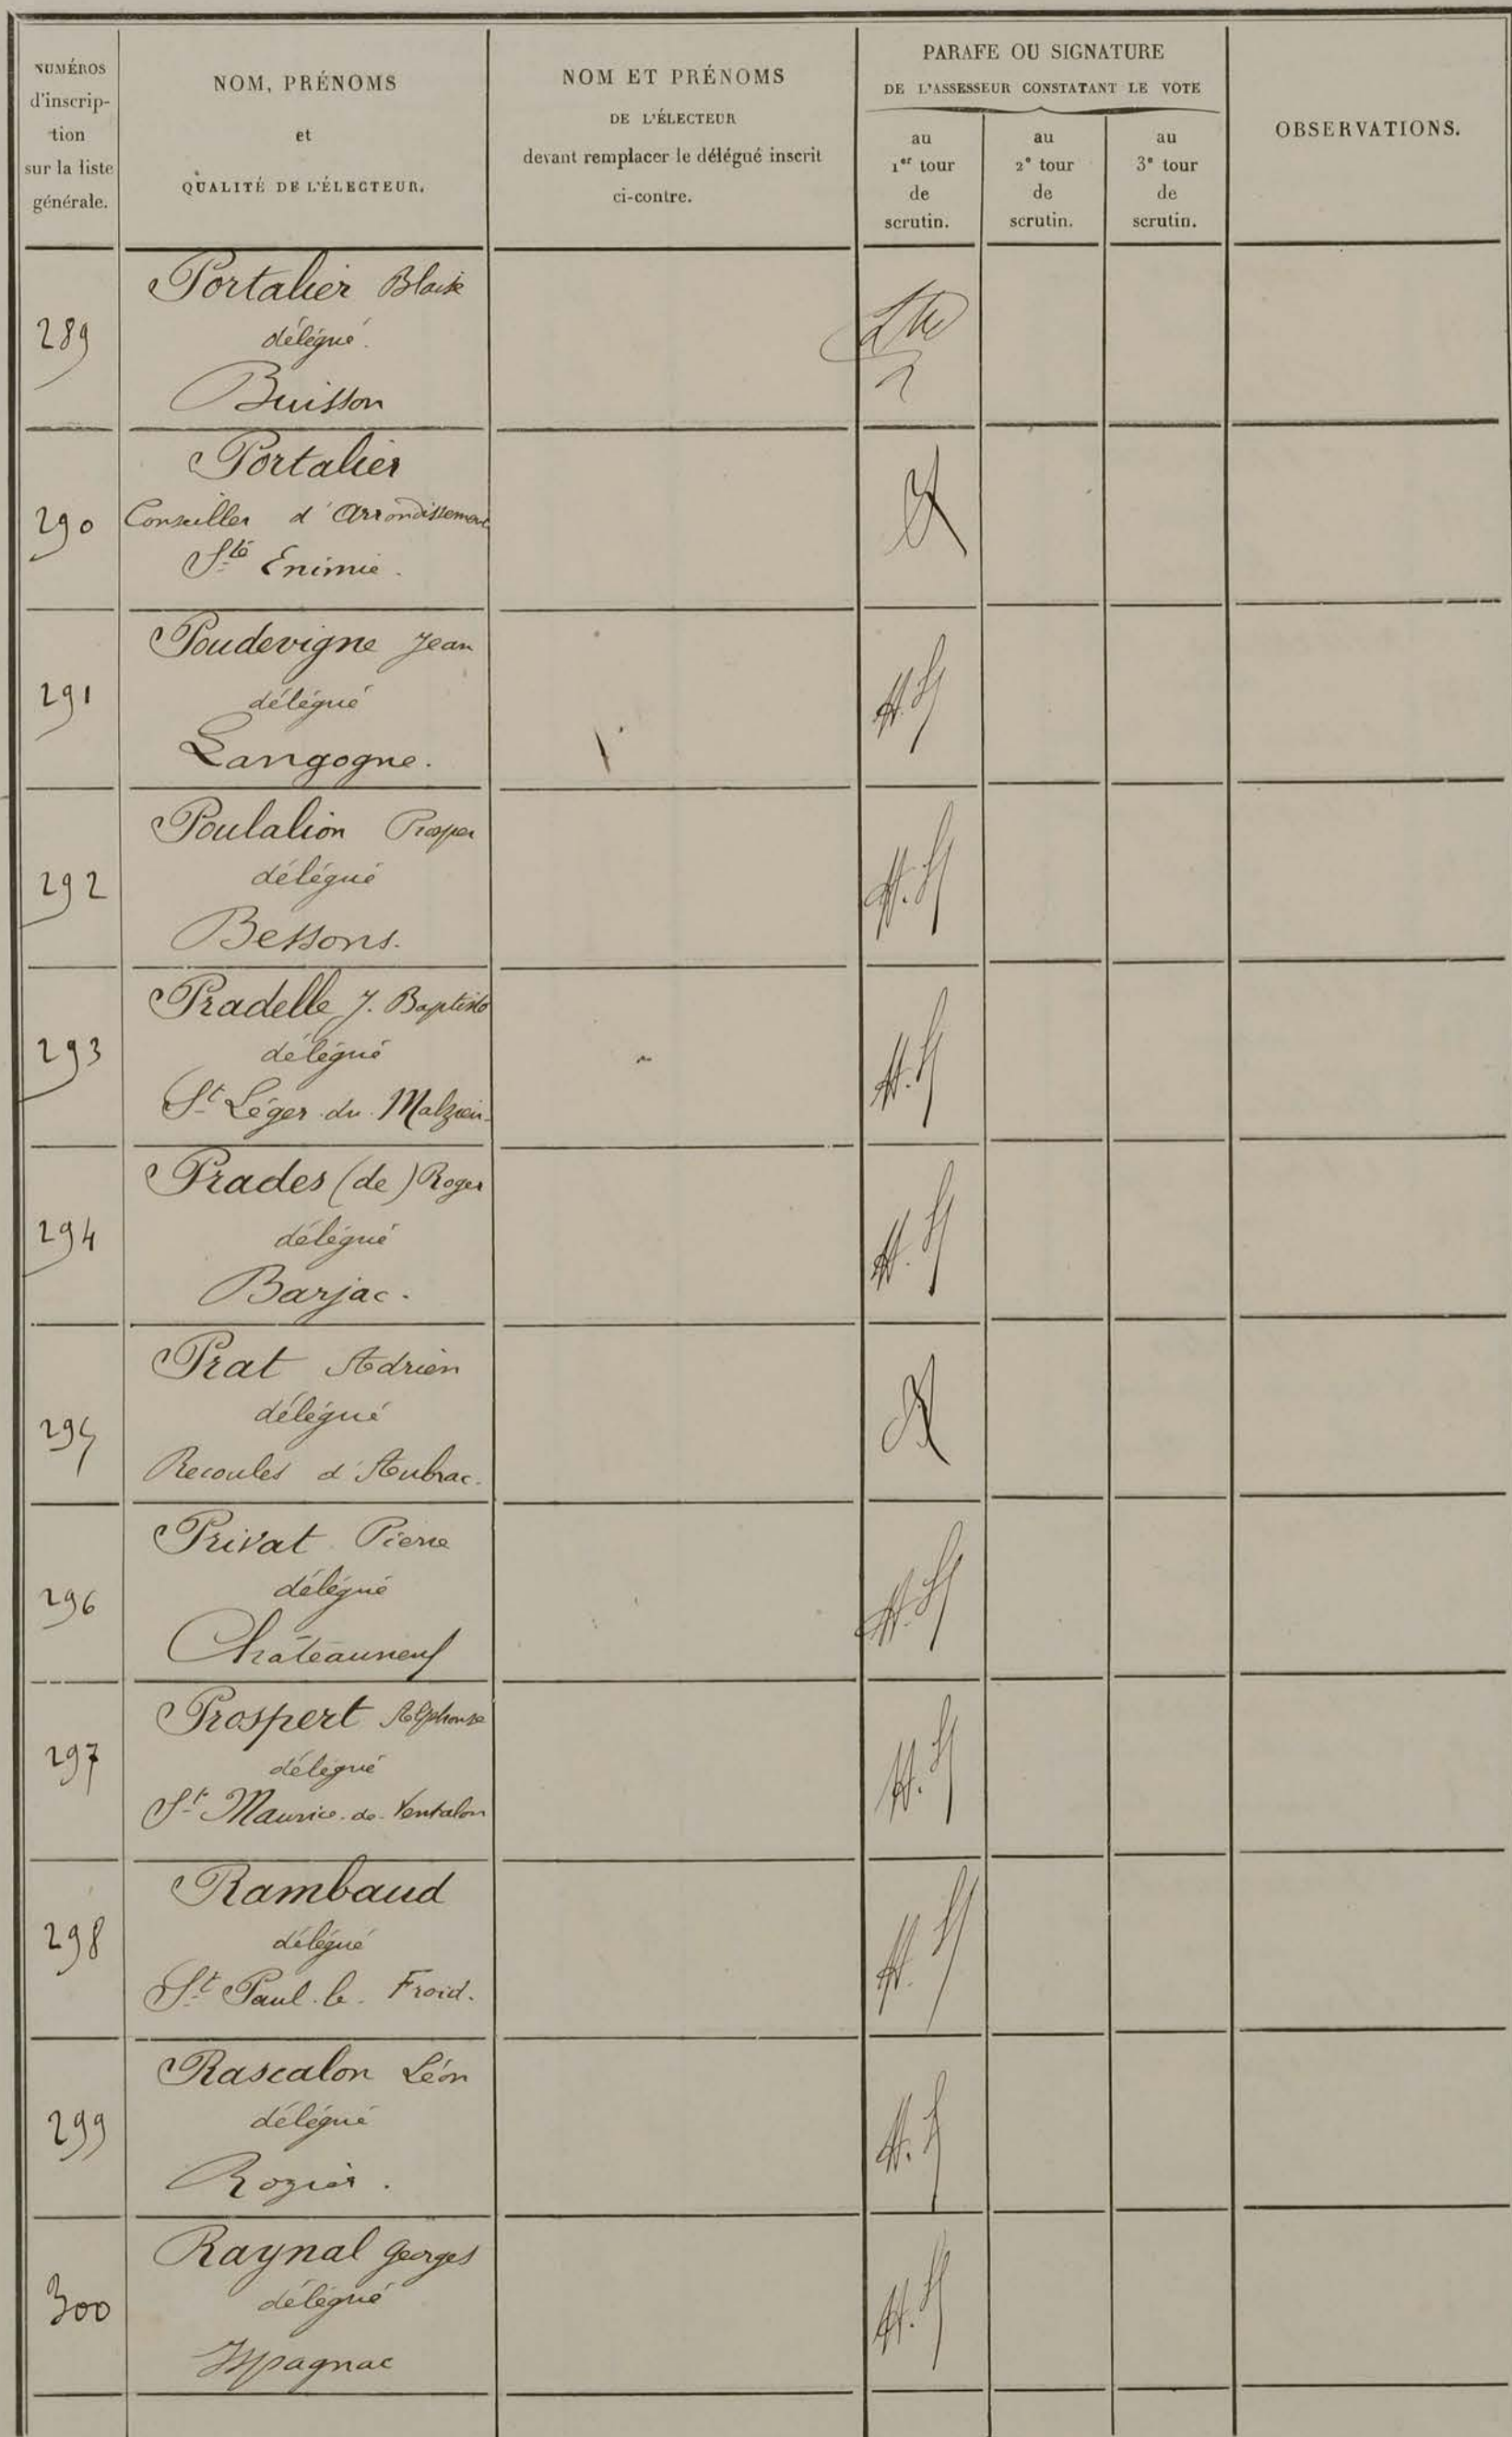 NUMÉROS
d'inscrip-
tion
sur la liste
générale.
NOM, PRÉNOMS
et
QUALITÉ DE L'ÉLECTEUR.
NOM ET PRÉNOMS
DE L'ÉLECTEUR
devant remplacer le délégué inscrit
ci-contre.
PARAFE OU SIGNATURE
DE L'ASSESSEUR CONSTATANT LE VOTE
au
1er tour
de
scrutin.
au
2e tour
de
scrutin.
au
3e tour
de
scrutin.
OBSERVATIONS.
289
Portalier Blaise
délégué.
Buisson
290
Portalier
Conseiller d'Arrondissement
Ste Enimie.
291
Poudevigne Jean
délégué
Langogne.
292
Poulalion Prosper
délégué
Bessons.
293
Pradelle J. Baptiste
délégué
St Léger du Malzieu
294
Prades (de) Roger
délégué
Barjac.
295
Prat Adrien
délégué
Recoules d'Aubrac.
296
Privat Pierre
délégué
Châteauneuf
297
Prospert Alphonse
délégué
St Maurice-de-Ventalon
298
Rambaud
délégué
St Paul-le-Froid.
299
Rascalon Léon
délégué
Rozier.
300
Raynal Georges
délégué
Ispagnac